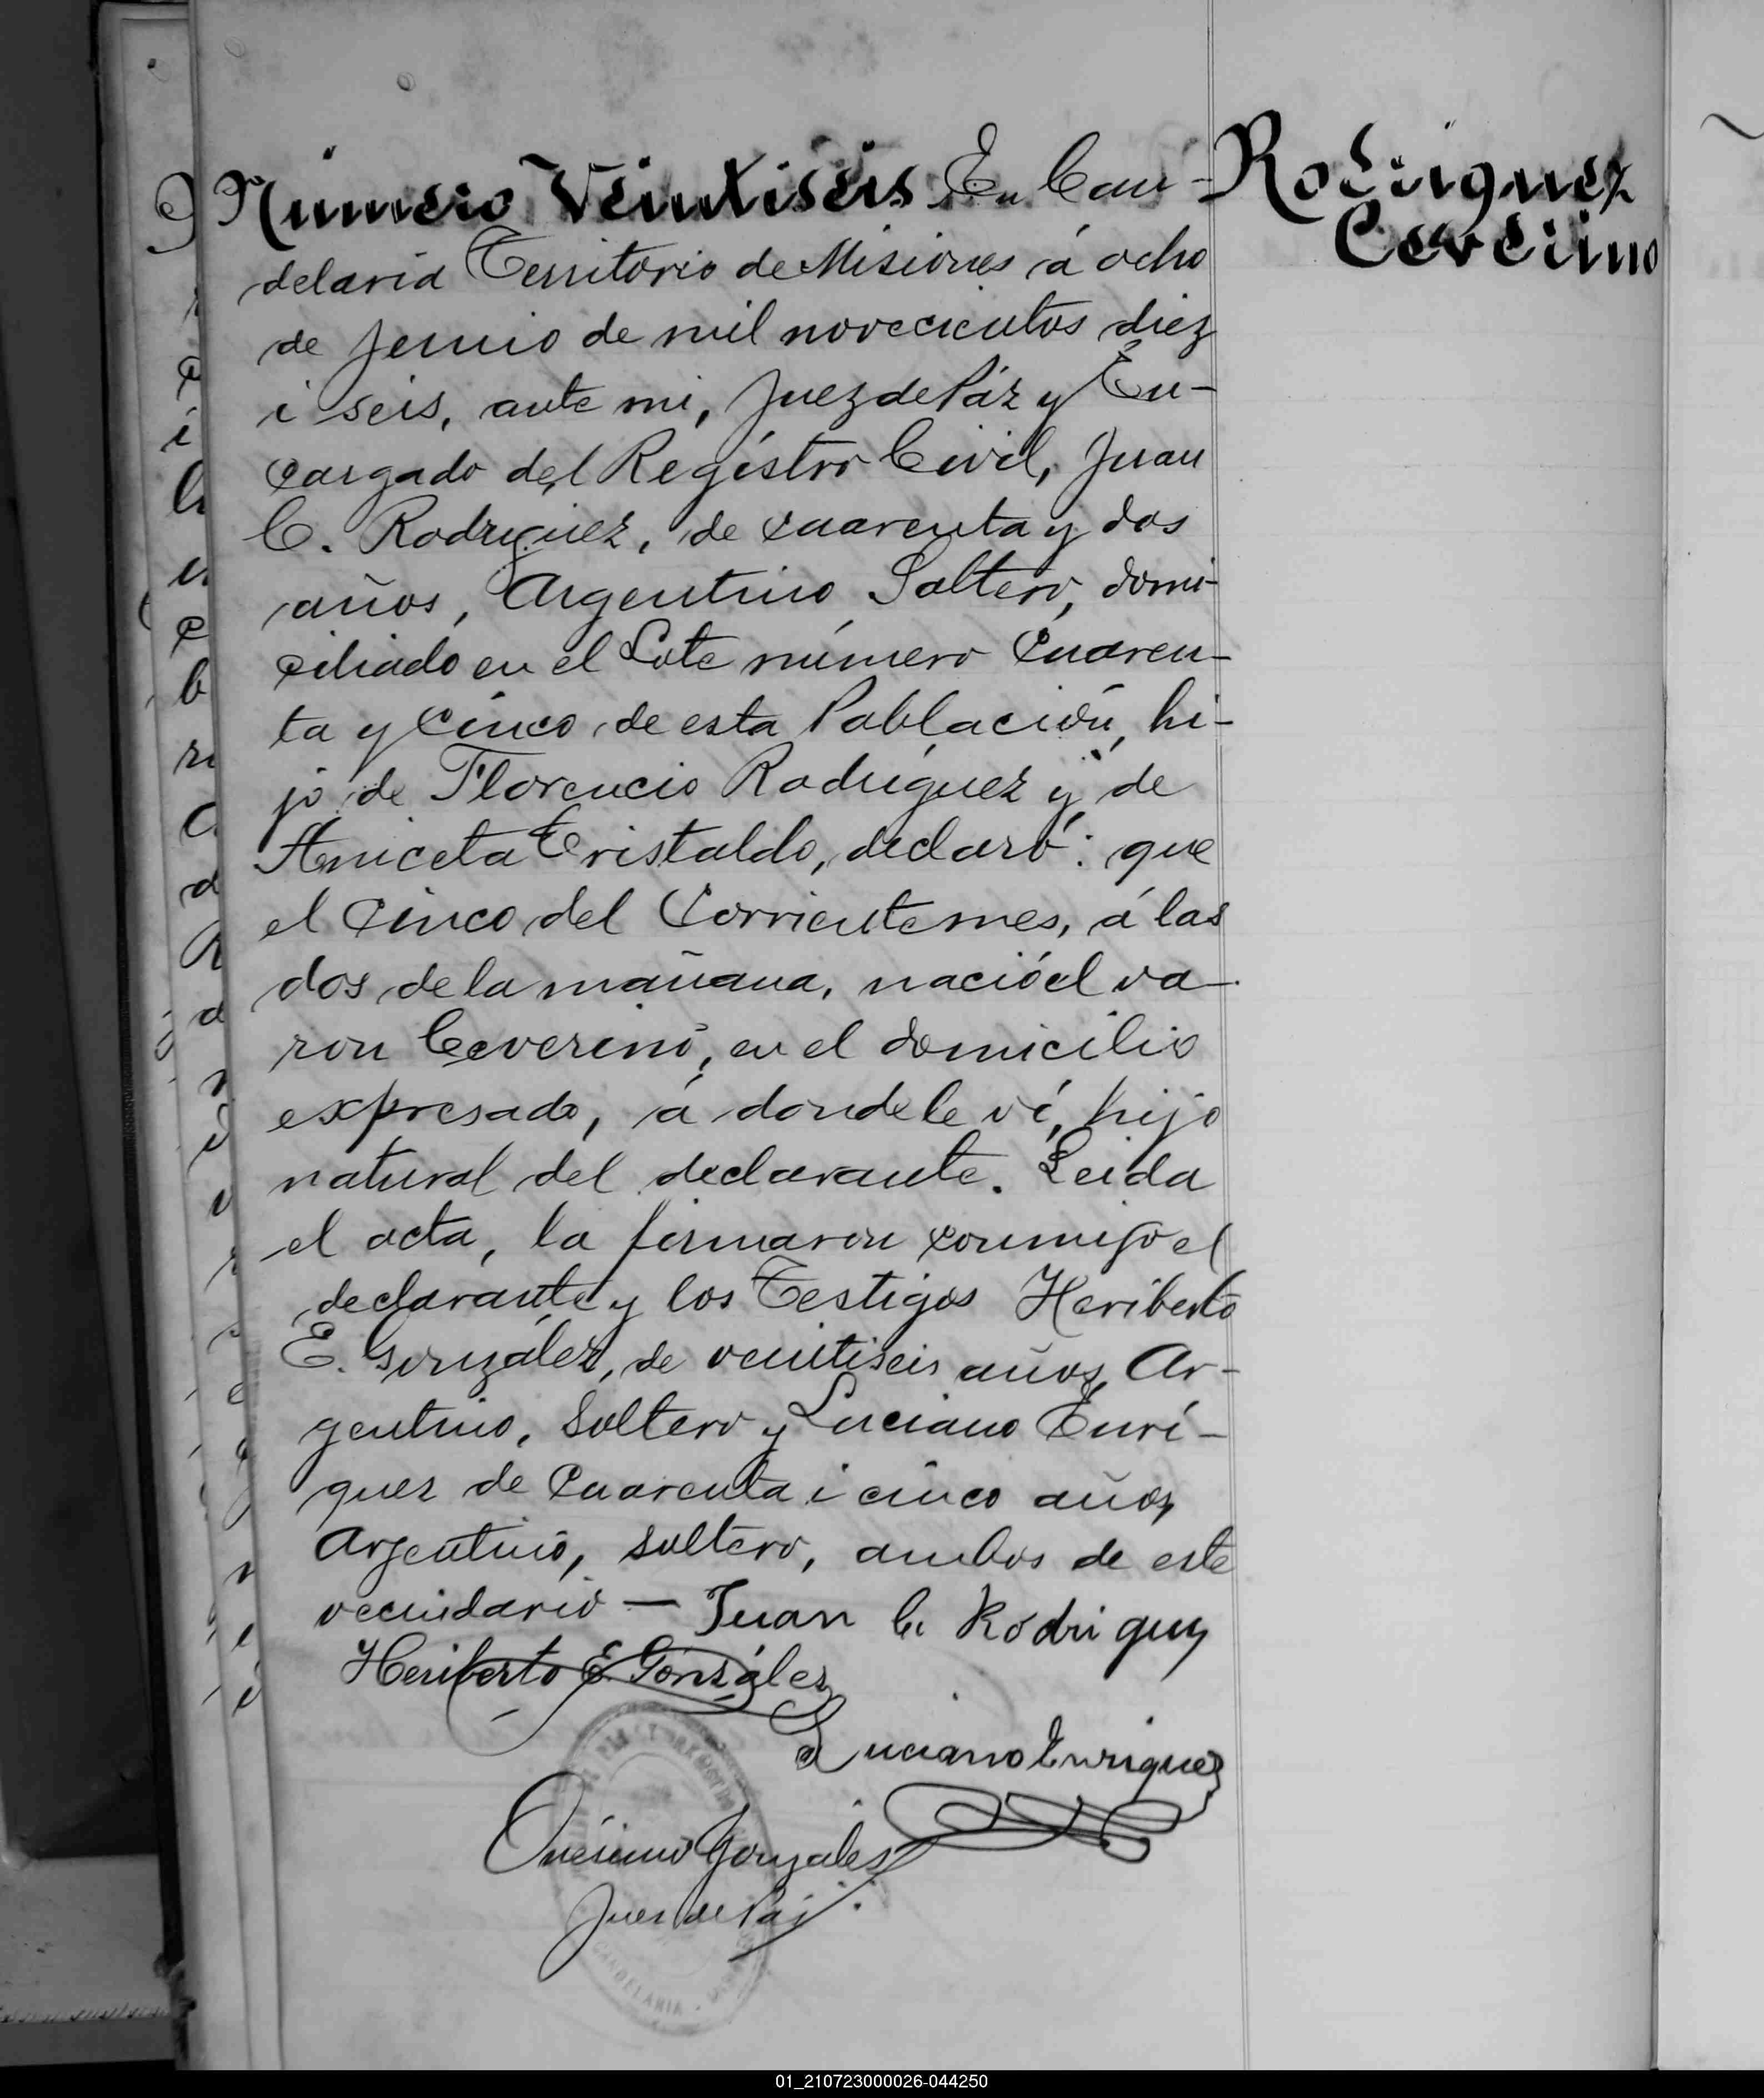 Número Veintiseis En Can-
delaria Territorio de Misiones á ocho
de Junio de mil novecientos diez
i seis, ante mi, Juez de Páz y En-
cargado del Registro Civil, Juan
C. Rodriguez, de cuarenta y dos
años, Argentino Soltero, domi-
ciliado en el Lote número Cuaren-
ta y Cinco de esta Población, hi-
jo de Florencio Rodriguez y de
Aniceta Cristaldo, declaró: que
el Cinco del Corriente mes, á las
dos de la mañana, nació el va-
ron Ceverino, en el domicilio
expresado, á donde le ví, hijo
natural del declarante. Leida
el acta, la firmaron conmigo el
declarante y los Testigos Heriberto
E. González, de veintiseis años, Ar-
gentino, Soltero y Luciano Enri-
quez de Cuarenta i cinco años,
Argentino, soltero, ambos de este
vecindario — Juan C. Rodriguez
Heriberto E. González
Luciano Enriquez
Onésimo Gonzales
Juez de Paz
CANDELARIA
Rodriguez
Ceverino
01_210723000026-044250